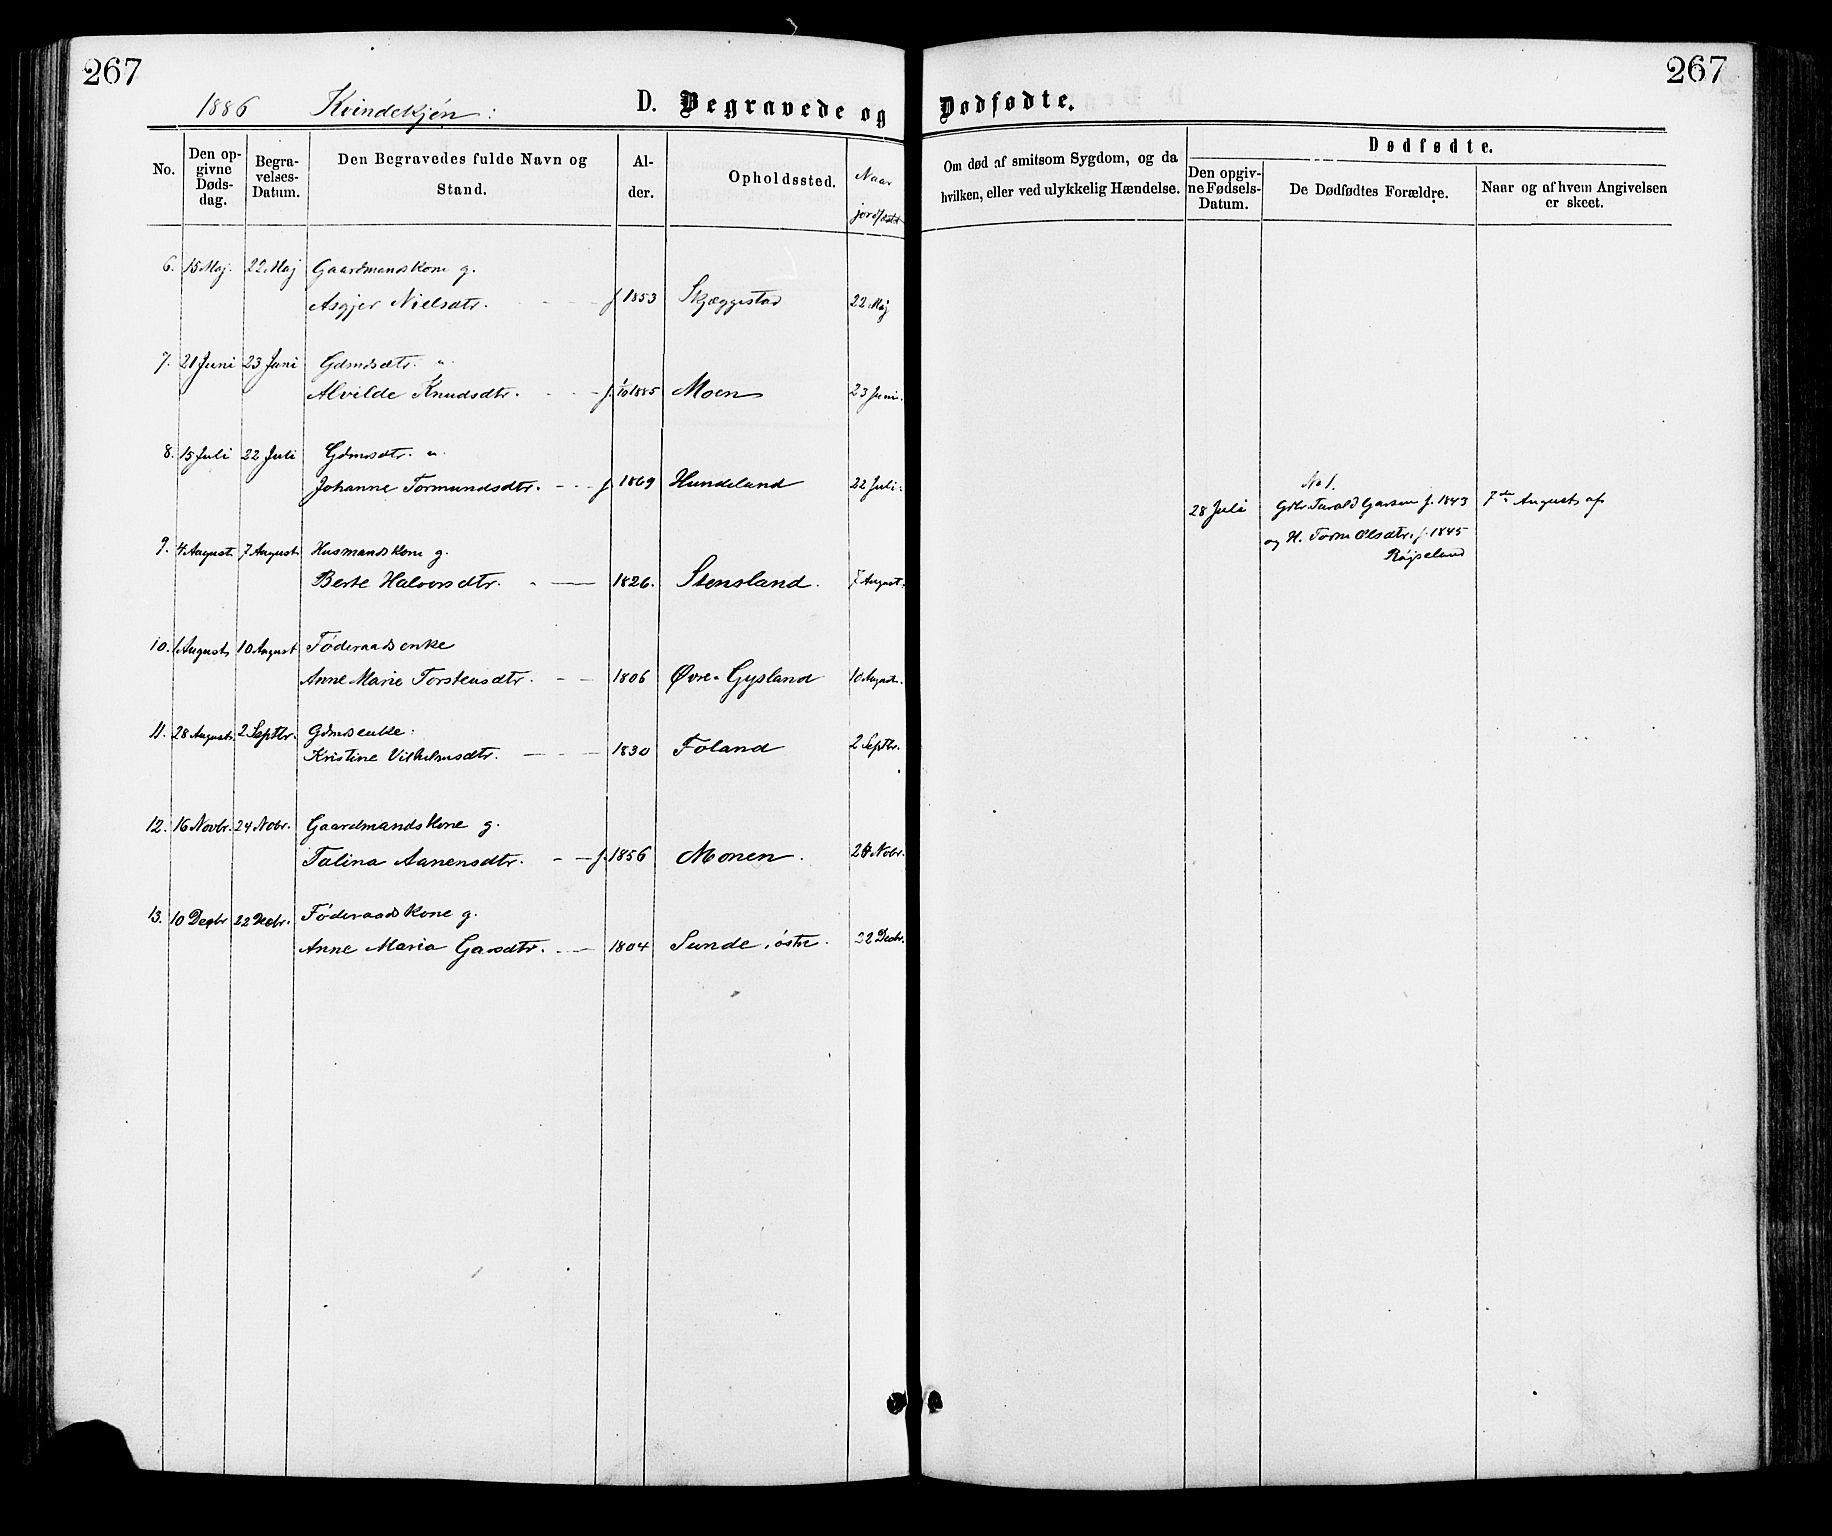 267
267
1886 Kvindekjøn:
D. Begravede og Dødfødte.
No.
Den opgivne Dødsdag.
Begravelses-Datum.
Den Begravedes fulde Navn og Stand.
Alder.
Opholdssted.
Naar jordfæstet
Om død af smitsom Sygdom, og da hvilken, eller ved ulykkelig Hændelse.
Dødfødte.
Den opgivne Fødsels-Datum.
De Dødfødtes Forældre.
Naar og af hvem Angivelsen er skeet.
6. 15 Maj. 22 Maj Gaardmandskone g.
Asgjer Nielsdtr. f. 1853 Skjæggestad 22 Maj
7. 21 Juni 23 Juni Gdmdsdtr. u.
Alvilde Knudsdtr. f. 1/10 1885 Moen 23 Juni.
8. 15 Juli 22 Juli Gdmsdtr. u.
Johanne Tormundsdtr. f. 1869 Hundeland 22 Juli.
No 1.
28 Juli Gdbr. Tarald Garsen f. 1843 7de August af
og H. Torine Olsdtr. f. 1845
Røjseland
9. 4 August 7 August Husmandskone g.
Berte Halvorsdtr. 1826. Stensland. 7 August.
10. 1 August 10 August Føderaadsenke
Anne Marie Torstensdtr. 1806 Øvre-Gysland 10 August.
11. 28 August 2 Septbr. Gdmdsenke:
Kristine Vilhelmsdtr. 1830 Foland 2 Septbr.
12. 16 Novbr. 24 Nobr. Gaardmandskone g.
Talina Aanensdtr. f. 1856 Monen. 24 Nobr.
13. 10 Decbr 22 Decbr. Føderaadskone g.
Anne Maria Garsdtr. 1804 Sunde, østre. 22 Decbr.